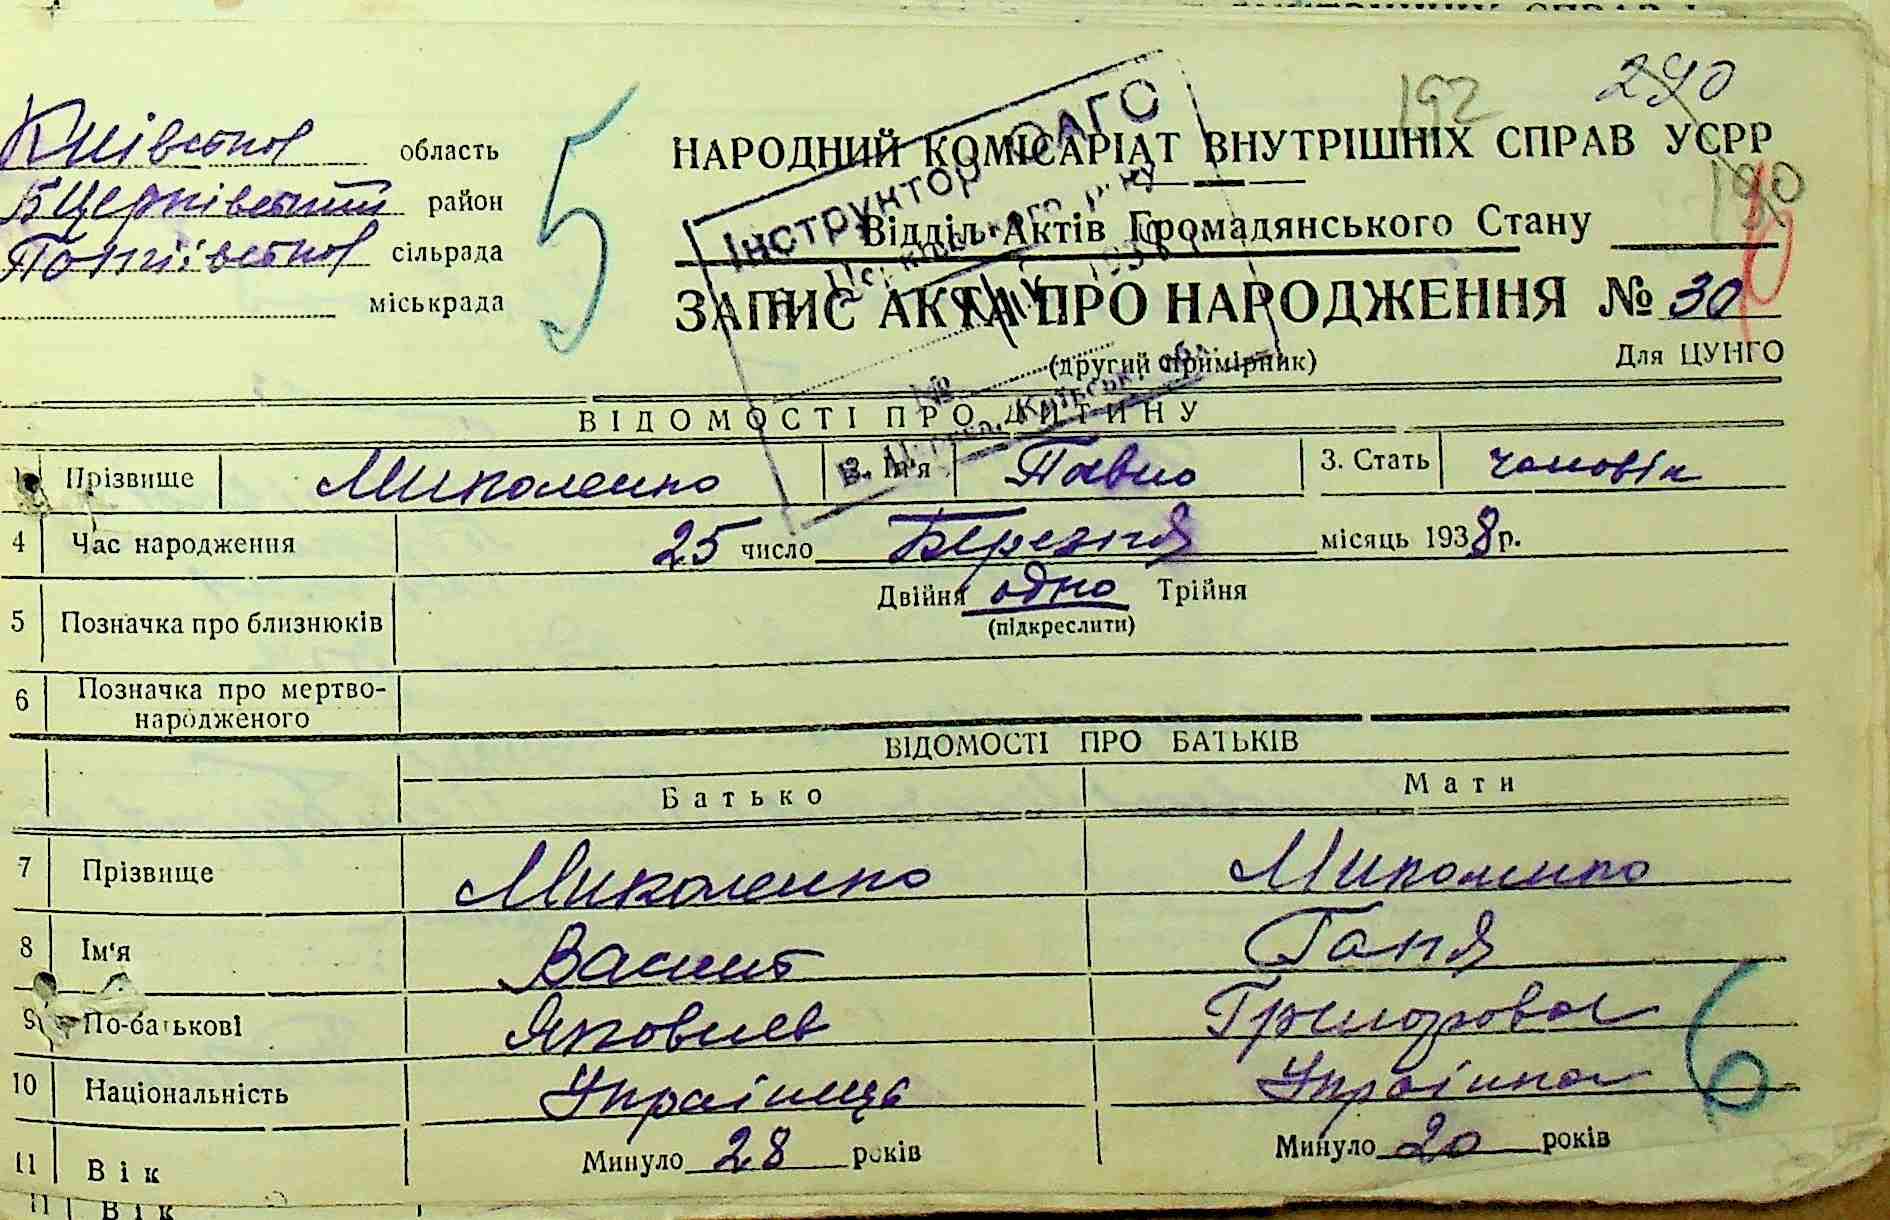 192 290
Київська область
БЦерківський район
сільрада
міськрада
5
НАРОДНИЙ КОМІСАРІАТ ВНУТРІШНІХ СПРАВ УСРР
190
Відділ Актів Громадянського Стану
ЗАПИС АКТА ПРО НАРОДЖЕННЯ № 30
(другий примірник) Для ЦУНГО
Інструктор ЗАГС
ВІДОМОСТІ ПРО ДИТИНУ
1 Прізвище Миколенко 2. Ім'я Павло 3. Стать чоловік
4 Час народження 25 число Березня місяць 1938 р.
5 Позначка про близнюків Двійня одно Трійня
(підкреслити)
6 Позначка про мертво-
народженого
ВІДОМОСТІ ПРО БАТЬКІВ
Батько Мати
7 Прізвище Миколенко Миколенко
8 Ім'я Василь Ганя
9 По-батькові Яковлев Григорова
10 Національність Українець Українка
6
11 Вік Минуло 28 років Минуло 20 років
11 Вік